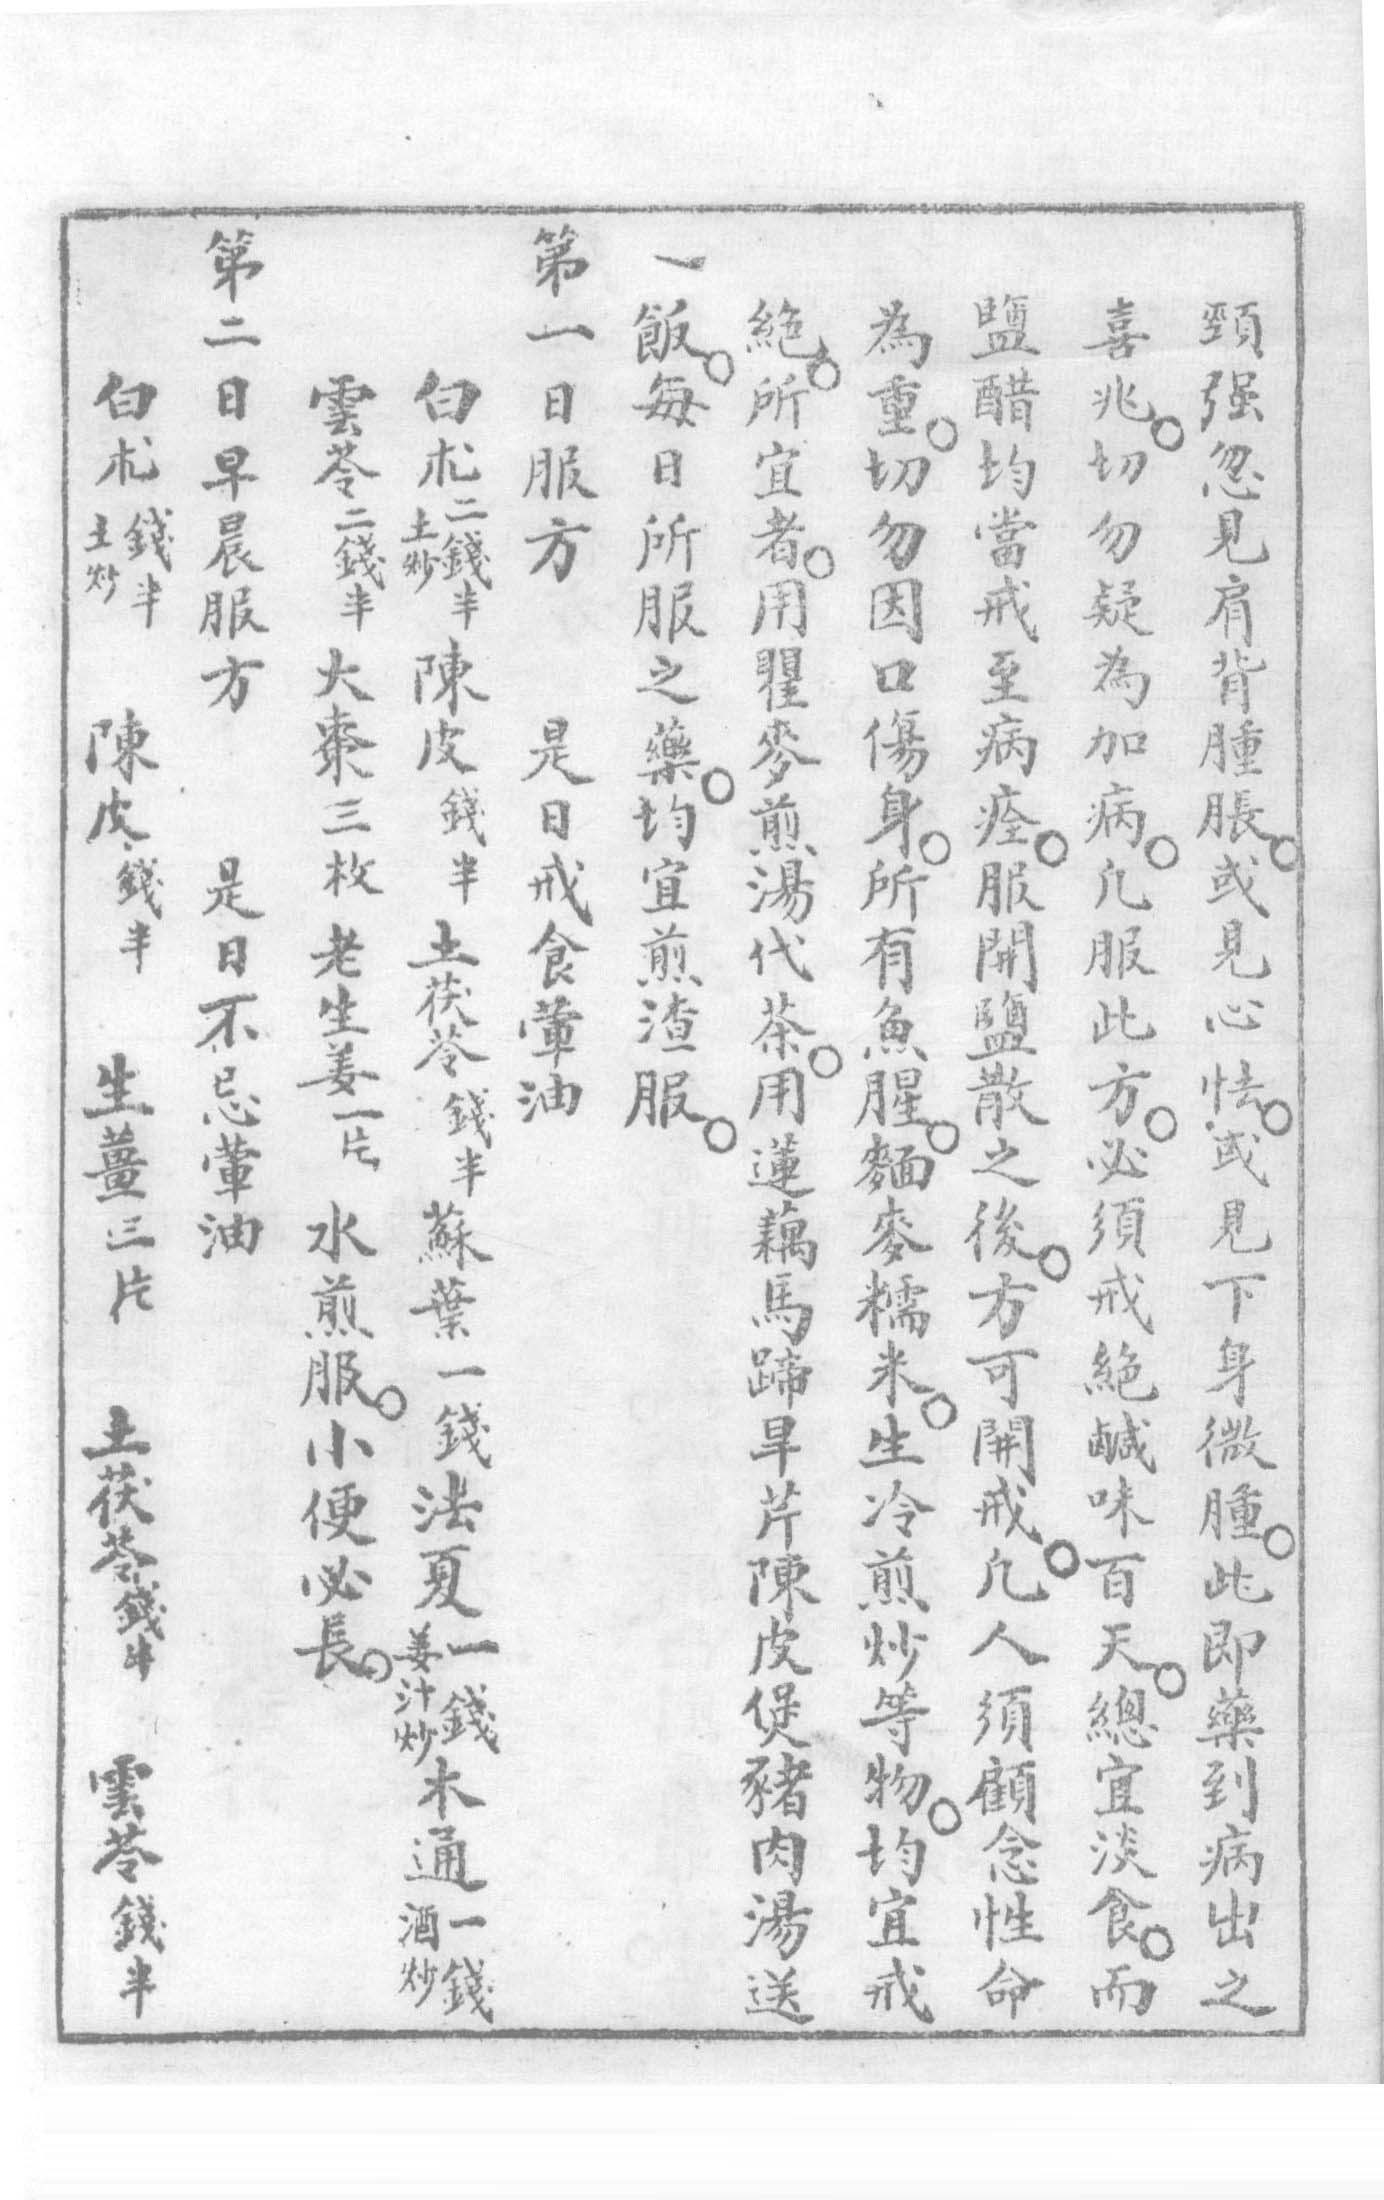 頸强忽見肩背腫脹。或見心怯。或見下身微腫。此即藥到病出之
喜兆。切勿疑為加病。凡服此方。必須戒絕鹹味百天。總宜淡食。而
鹽醋均當戒至病痊。服開鹽散之後。方可開戒。凡人須顧念性命
為重。切勿因口傷身。所有魚腥。麵麥糯米。生冷煎炒等物。均宜戒
絕。所宜者。用瞿麥煎湯代茶。用蓮藕馬蹄旱芹陳皮煲豬肉湯送
飯。每日所服之藥。均宜煎渣服。
第一日服方　是日戒食葷油
白朮二錢半土炒　陳皮錢半　土茯苓錢半　蘇葉一錢　法夏一錢姜汁炒　木通一錢酒炒
雲苓二錢半　大棗三枚　老生姜一片　水煎服。小便必長。
第二日早晨服方　是日不忌葷油
白朮錢半土炒　陳皮錢半　生薑三片　土茯苓錢半　雲苓錢半